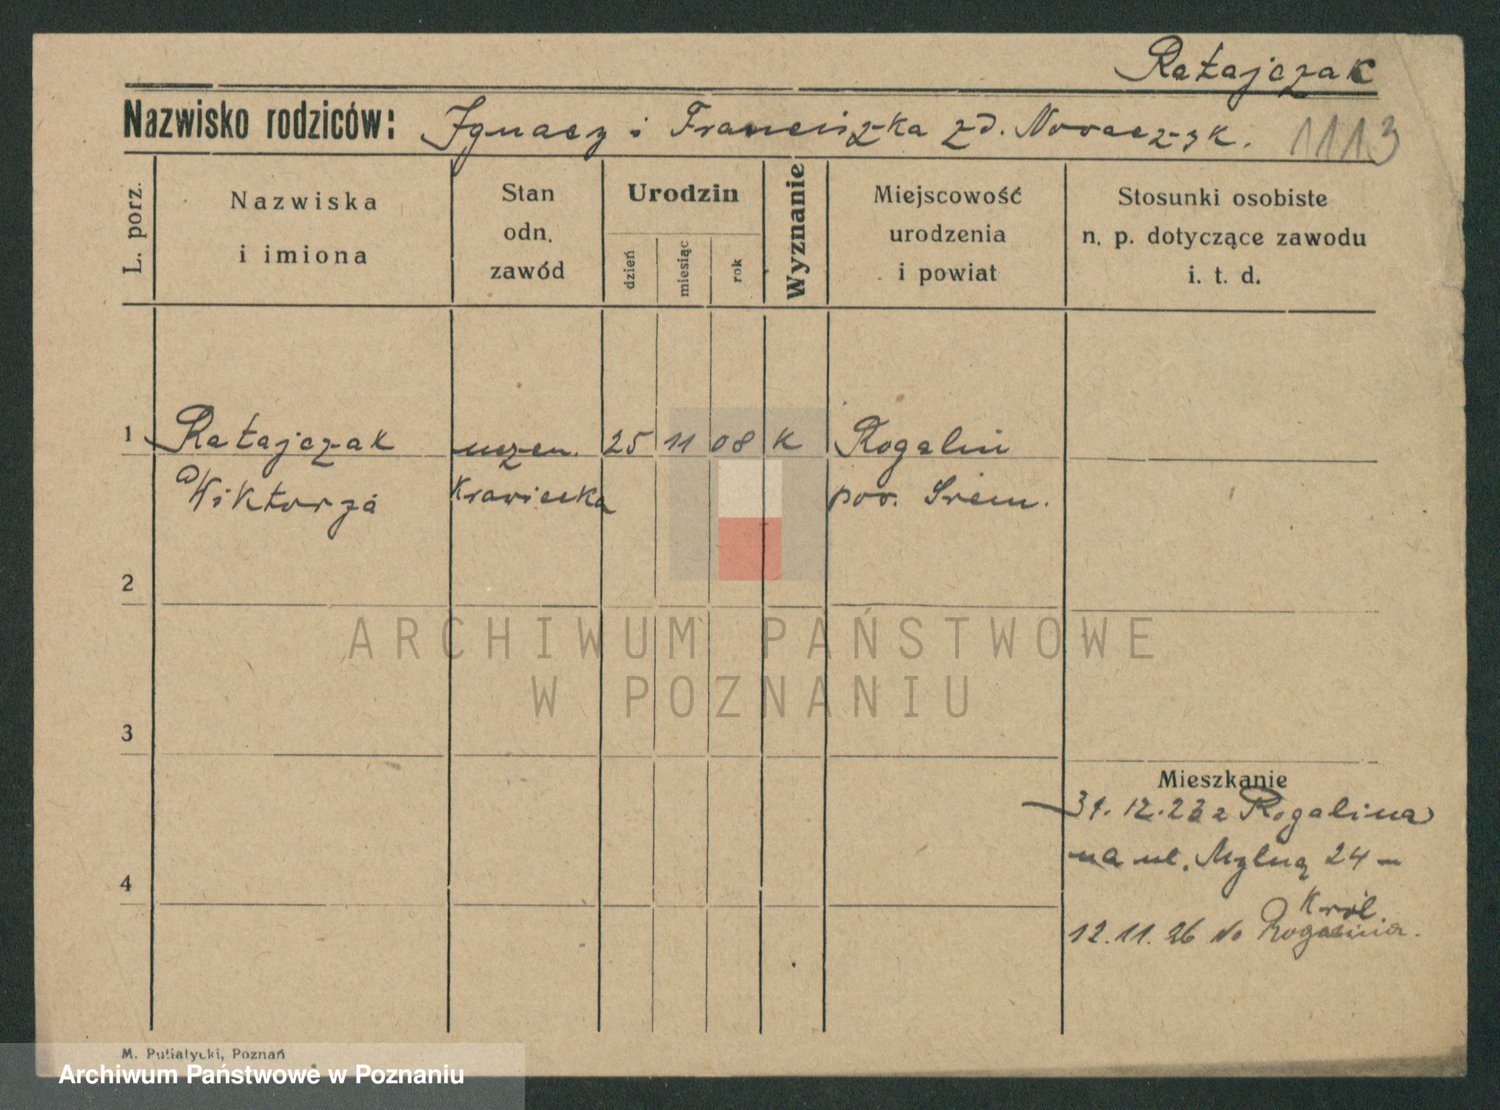 Ratajczak
Nazwisko rodziców: Ignacy i Franciszka zd. Nowaczyk. 1113
L. porz.
Nazwiska
i imiona
Stan
odn.
zawód
Urodzin
dzień
miesiąc
rok
Wyznanie
Miejscowość
urodzenia
i powiat
Stosunki osobiste
n. p. dotyczące zawodu
i. t. d.
1 Ratajczak uczen. 25 11 08 K Rogalin
Wiktorja Krawiecka pow. Śrem.
2
ARCHIWUM PAŃSTWOWE
W POZNANIU
3
Mieszkanie
31.12.23 z Rogalina
na ul. Mylną 24 –
Król
4
12.11.26 do Rogalina.
M. Putiatycki, Poznań
Archiwum Państwowe w Poznaniu